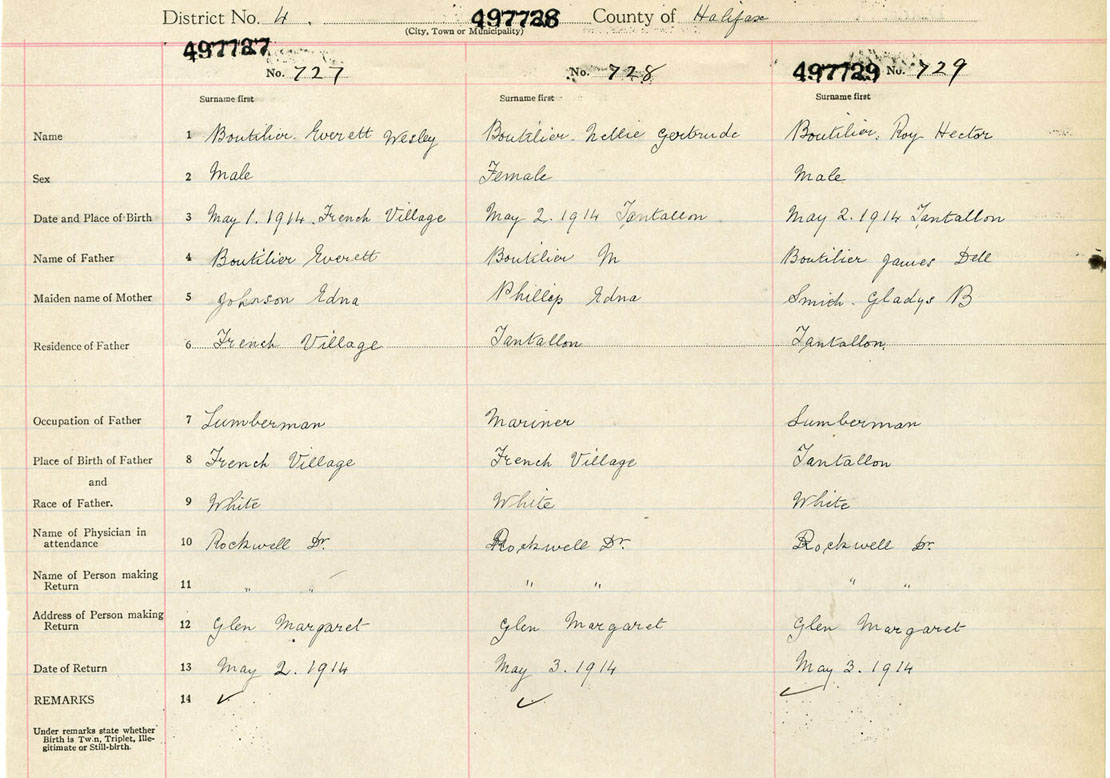 District No. 4 497728 County of Halifax
(City, Town or Municipality)
497727 No. 727 No. 728 497729 No. 729
Surname first Surname first Surname first
Name 1 Boutilier. Everett Wesley Boutilier. Nellie Gertrude Boutilier. Roy Hector
Sex 2 Male Female Male
Date and Place of Birth 3 May 1. 1914. French Village May 2. 1914 Tantallon May 2. 1914 Tantallon
Name of Father 4 Boutilier Everett Boutilier M Boutilier James Dell
Maiden name of Mother 5 Johnson Edna Phillip Edna Smich. Gladys B
Residence of Father 6 French Village Tantallon Tantallon
Occupation of Father 7 Lumberman Mariner Lumberman
Place of Birth of Father 8 French Village French Village Tantallon
and
Race of Father. 9 White White White
Name of Physician in
attendance 10 Rockwell Dr. Rockwell Dr. Rockwell Dr.
Name of Person making
Return 11 " " " " " "
Address of Person making
Return 12 Glen Margaret Glen Margaret Glen Margaret
Date of Return 13 May 2. 1914 May 3. 1914 May 3. 1914
REMARKS 14 ✓ ✓ ✓
Under remarks state whether
Birth is Twin, Triplet, Ille-
gitimate or Still-birth.